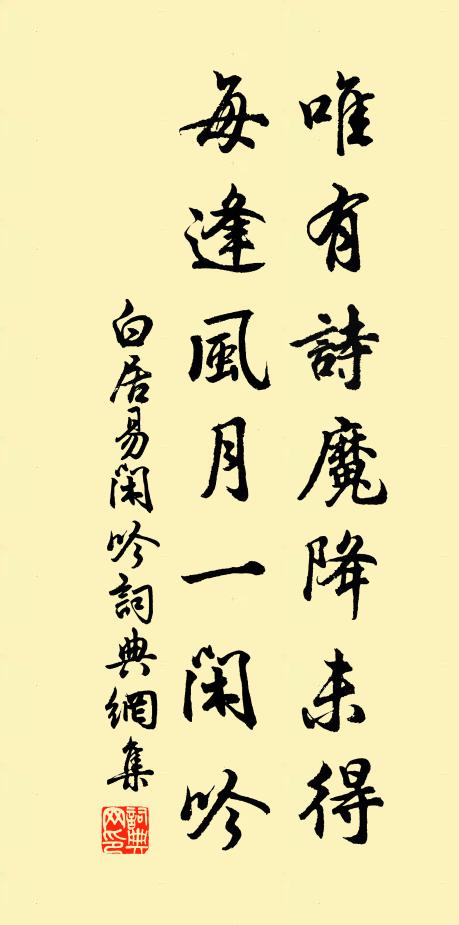 唯有詩魔降未得
每逢風月一閑吟
白居易閑吟詞典網集
詞典
网印